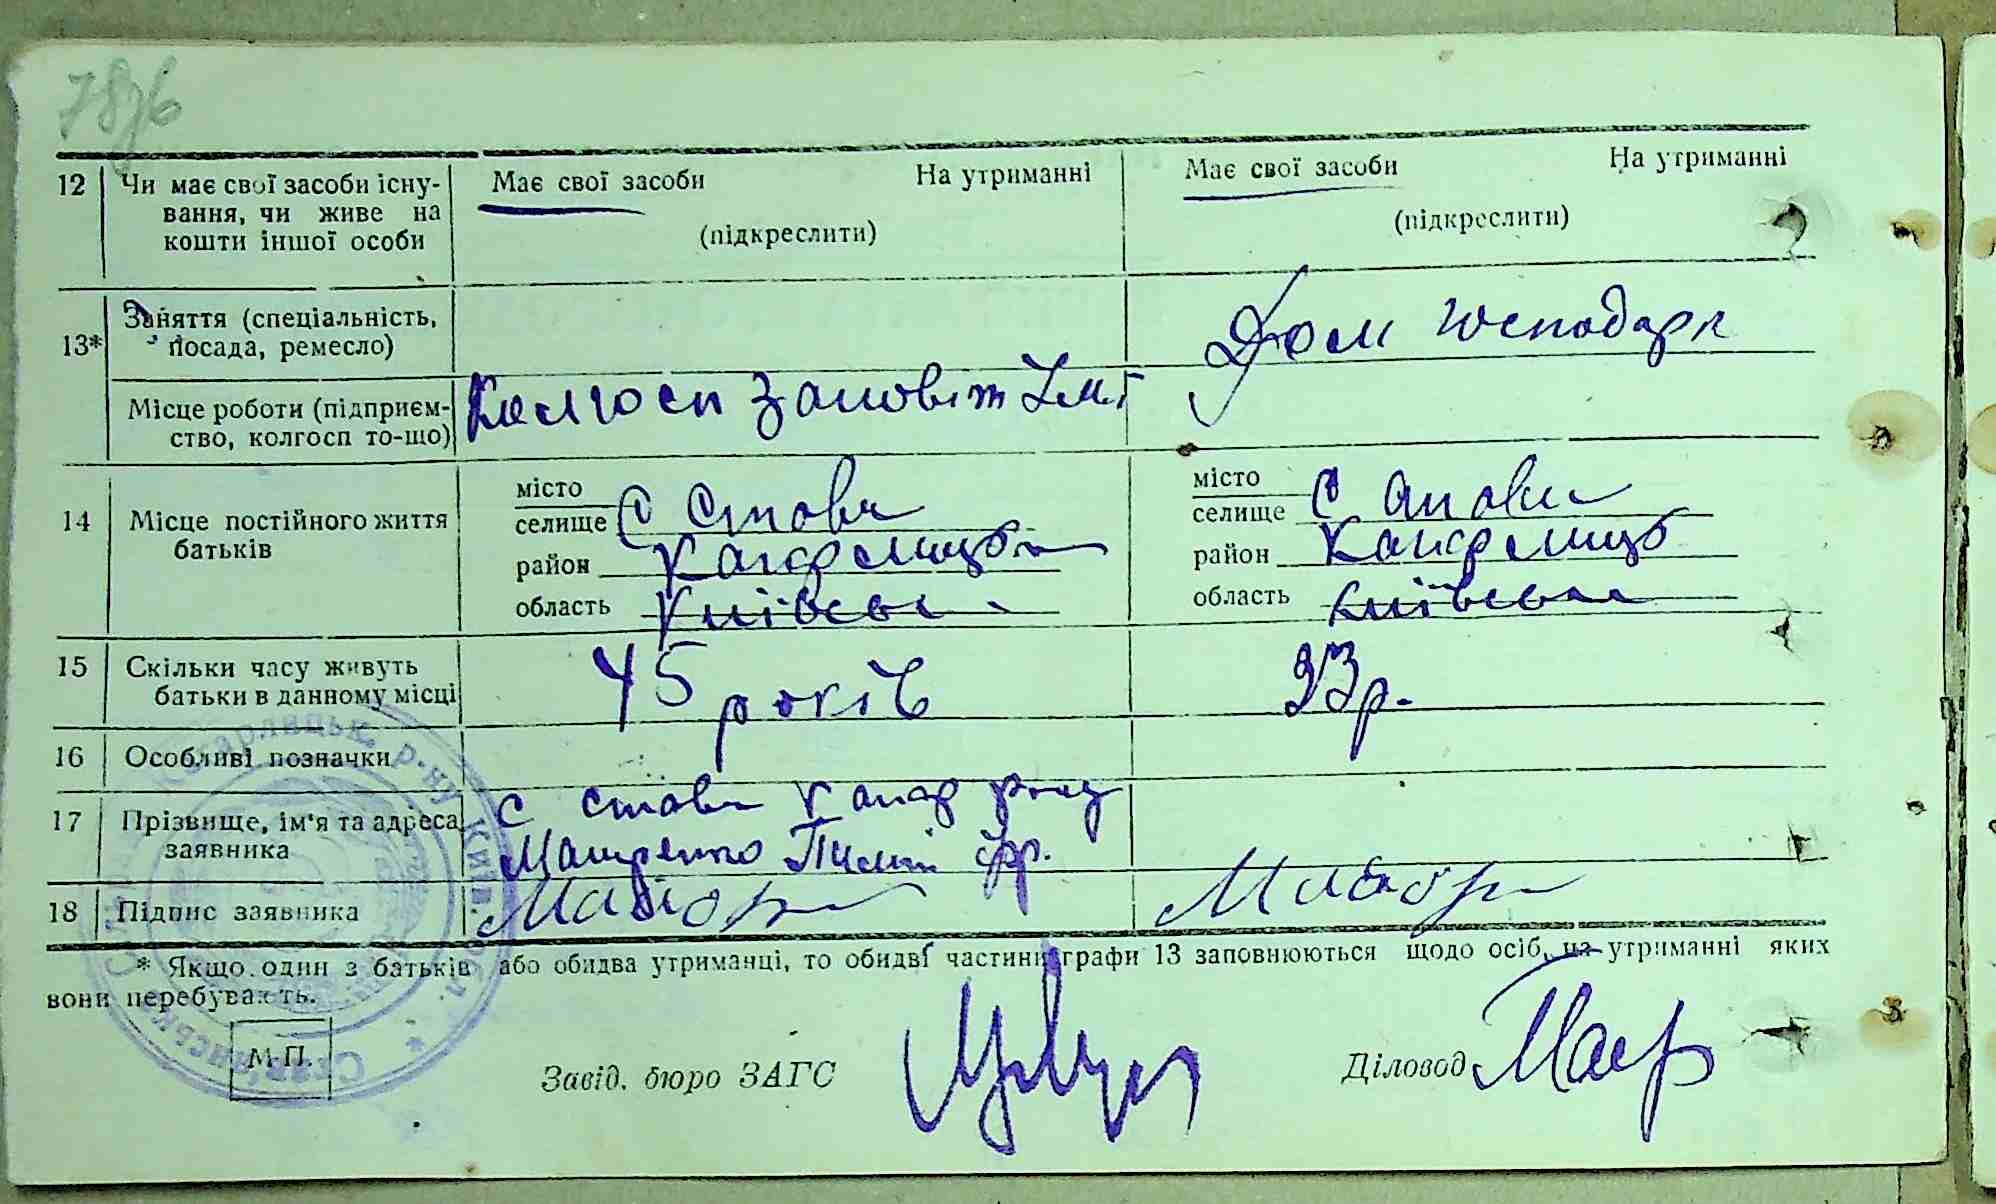 12 Чи має свої засоби існу- Має свої засоби На утриманні Має свої засоби На утриманні
вання, чи живе на (підкреслити) (підкреслити)
кошти іншої особи
Заняття (спеціальність, Дом господарк
13* посада, ремесло)
Місце роботи (підприєм- Колгосп Заповіт
ство, колгосп то-що)
місто місто
14 Місце постійного життя селище С Стови селище С Стови
батьків район Кагарлицьк район Кагарлицьк
область Київськ область Київська
15 Скільки часу живуть 45 років 23 р.
батьки в данному місці
16 Особливі позначки
с Стови Кагар р-ну
17 Прізвище, ім'я та адреса
заявника
18 Підпис заявника
* Якщо один з батьків або обидва утриманці, то обидві частини графи 13 заповнюються щодо осіб, на утриманні яких
вони перебувають.
М.П. Завід. бюро ЗАГС Діловод
Кагарлицьк. р-ну Київ. обл.